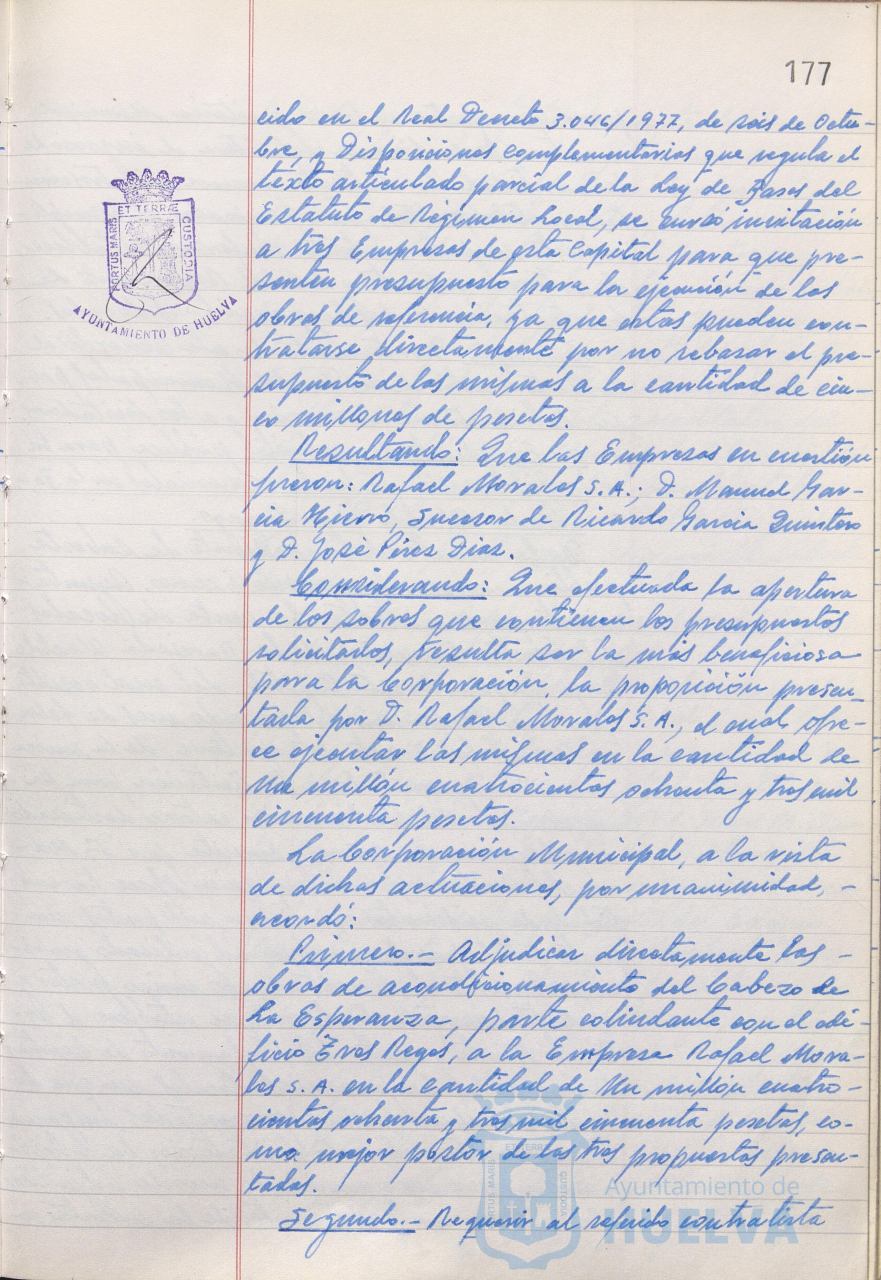 177
cido en el Real Decreto 3.046/1977, de seis de Octu-
bre, y Disposiciones complementarias que regula el
texto articulado parcial de la Ley de Bases del
Estatuto de Régimen Local, se cursó invitación
a tres Empresas de esta Capital para que pre-
senten presupuesto para la ejecución de las
obras de referencia, ya que estas pueden con-
tratarse directamente por no rebasar el pre-
supuesto de las mismas a la cantidad de cin-
co millones de pesetas.
Resultando: Que las Empresas en cuestión
fueron: Rafael Morales S.A.; D. Manuel Gar-
cia Hierro, Sucesor de Ricardo Garcia Quintero
y D. José Pérez Diaz.
Considerando: Que efectuada la apertura
de los sobres que contienen los presupuestos
solicitados, resulta ser la más beneficiosa
para la Corporación, la proposición presen-
tada por D. Rafael Morales S.A., el cual ofre-
ce ejecutar las mismas en la cantidad de
Un millón cuatrocientas ochenta y tres mil
cincuenta pesetas.
La Corporación Municipal, a la vista
de dichas actuaciones, por unanimidad, -
acordó:
Primero.- Adjudicar directamente las -
obras de acondicionamiento del Cabezo de
La Esperanza, parte colindante con el edi-
ficio Tres Reyes, a la Empresa Rafael Mora-
les S.A. en la cantidad de Un millón cuatro-
cientas ochenta y tres mil cincuenta pesetas, co-
mo mejor postor de las tres propuestas presen-
tadas.
Segundo.- Requerir al referido contratista
ET TERRÆ
PORTUS MARIS
CUSTODIA
AYUNTAMIENTO DE HUELVA
ET TERRÆ
PORTUS MARIS
CUSTODIA
Ayuntamiento de
HUELVA